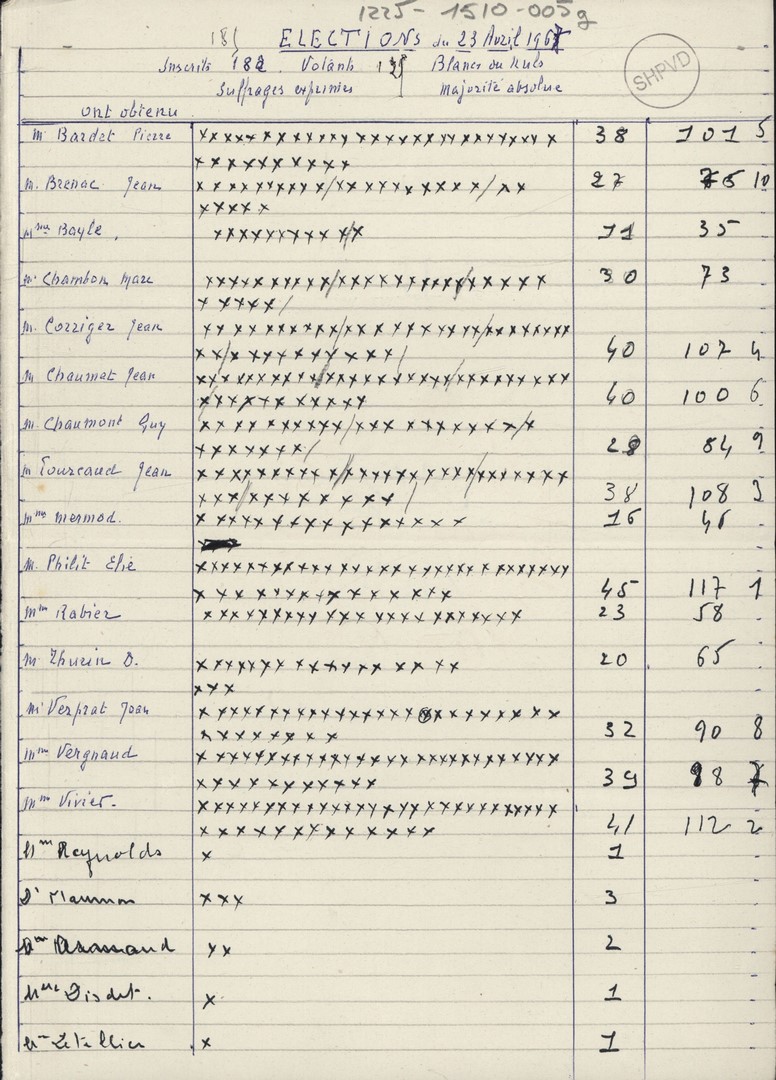 1225-1510-005g
181 ELECTIONS du 23 Avril 1967
Inscrits 182 Votants Blancs ou nuls
SHPVD
Suffrages exprimés Majorité absolue
ont obtenu
M. Bardet Pierre xxxxxxxxxxxxxxxxxxxxxxxxxxxx 38 101 5
xxxxxxxxxx
M. Brenac Jean xxxxxxxxxxxxxxxxxxxxxx 27 76 10
xxxxx
Mme Bayle. xxxxxxxxxxx 11 35
M. Chambon Marc xxxxxxxxxxxxxxxxxxxxxxxxx 30 73
xxxxx
M. Corriger Jean xxxxxxxxxxxxxxxxxxxxxxxxxxxx
xxxxxxxxxxxx 40 107 4
M. Chaumat Jean xxxxxxxxxxxxxxxxxxxxxxxxxxxx
xxxxxxxxxxxx 40 100 6
M. Chaumont Guy xxxxxxxxxxxxxxxxxxxxx
xxxxxxx 28 84 9
M. Fourcaud Jean xxxxxxxxxxxxxxxxxxxxxxxxxxxx
xxxxxxxxxx 38 108 3
Mme Mermod. xxxxxxxxxxxxxxxx 16 46
M. Philit Elie xxxxxxxxxxxxxxxxxxxxxxxxxxxxxx
xxxxxxxxxxxxxxx 45 117 1
Mme Rabier xxxxxxxxxxxxxxxxxxxxxxx 23 58
M. Thurin O. xxxxxxxxxxxxxxxxx 20 65
xxx
M. Verprat Jean xxxxxxxxxxxxxxxxxxxxxxxxx
xxxxxxx 32 90 8
Mme Vergnaud xxxxxxxxxxxxxxxxxxxxxxxxxxx
xxxxxxxxxxxx 39 98 7
Mme Vivier. xxxxxxxxxxxxxxxxxxxxxxxxxxxx
xxxxxxxxxxxxx 41 112 2
Mme Reynolds x 1
Dr Maumon xxx 3
xx 2
Mme Disdet. x 1
Mme Letellier x 1